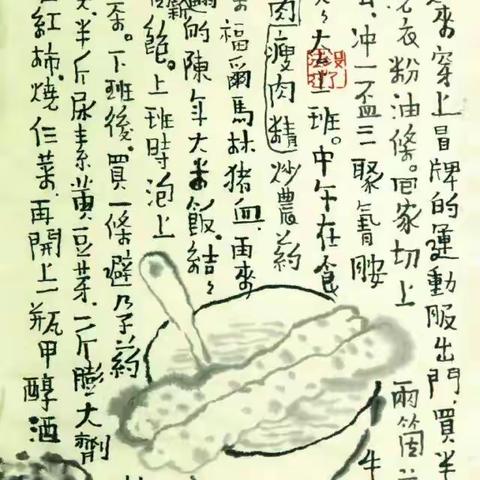 來穿上冒牌的運動服出門,買半
衣粉油條。回家切上兩箇
冲一盃三聚氰胺牛
上班。中午在食
肉瘦肉精炒農葯
福爾馬林猪血,再來
的陳年大米飯,結
飽。上班時泡上
下班後,買一條避孕葯
半斤尿素黄豆芽,一斤膨大劑
紅柿,燒仨菜,再開上一瓶甲醇酒